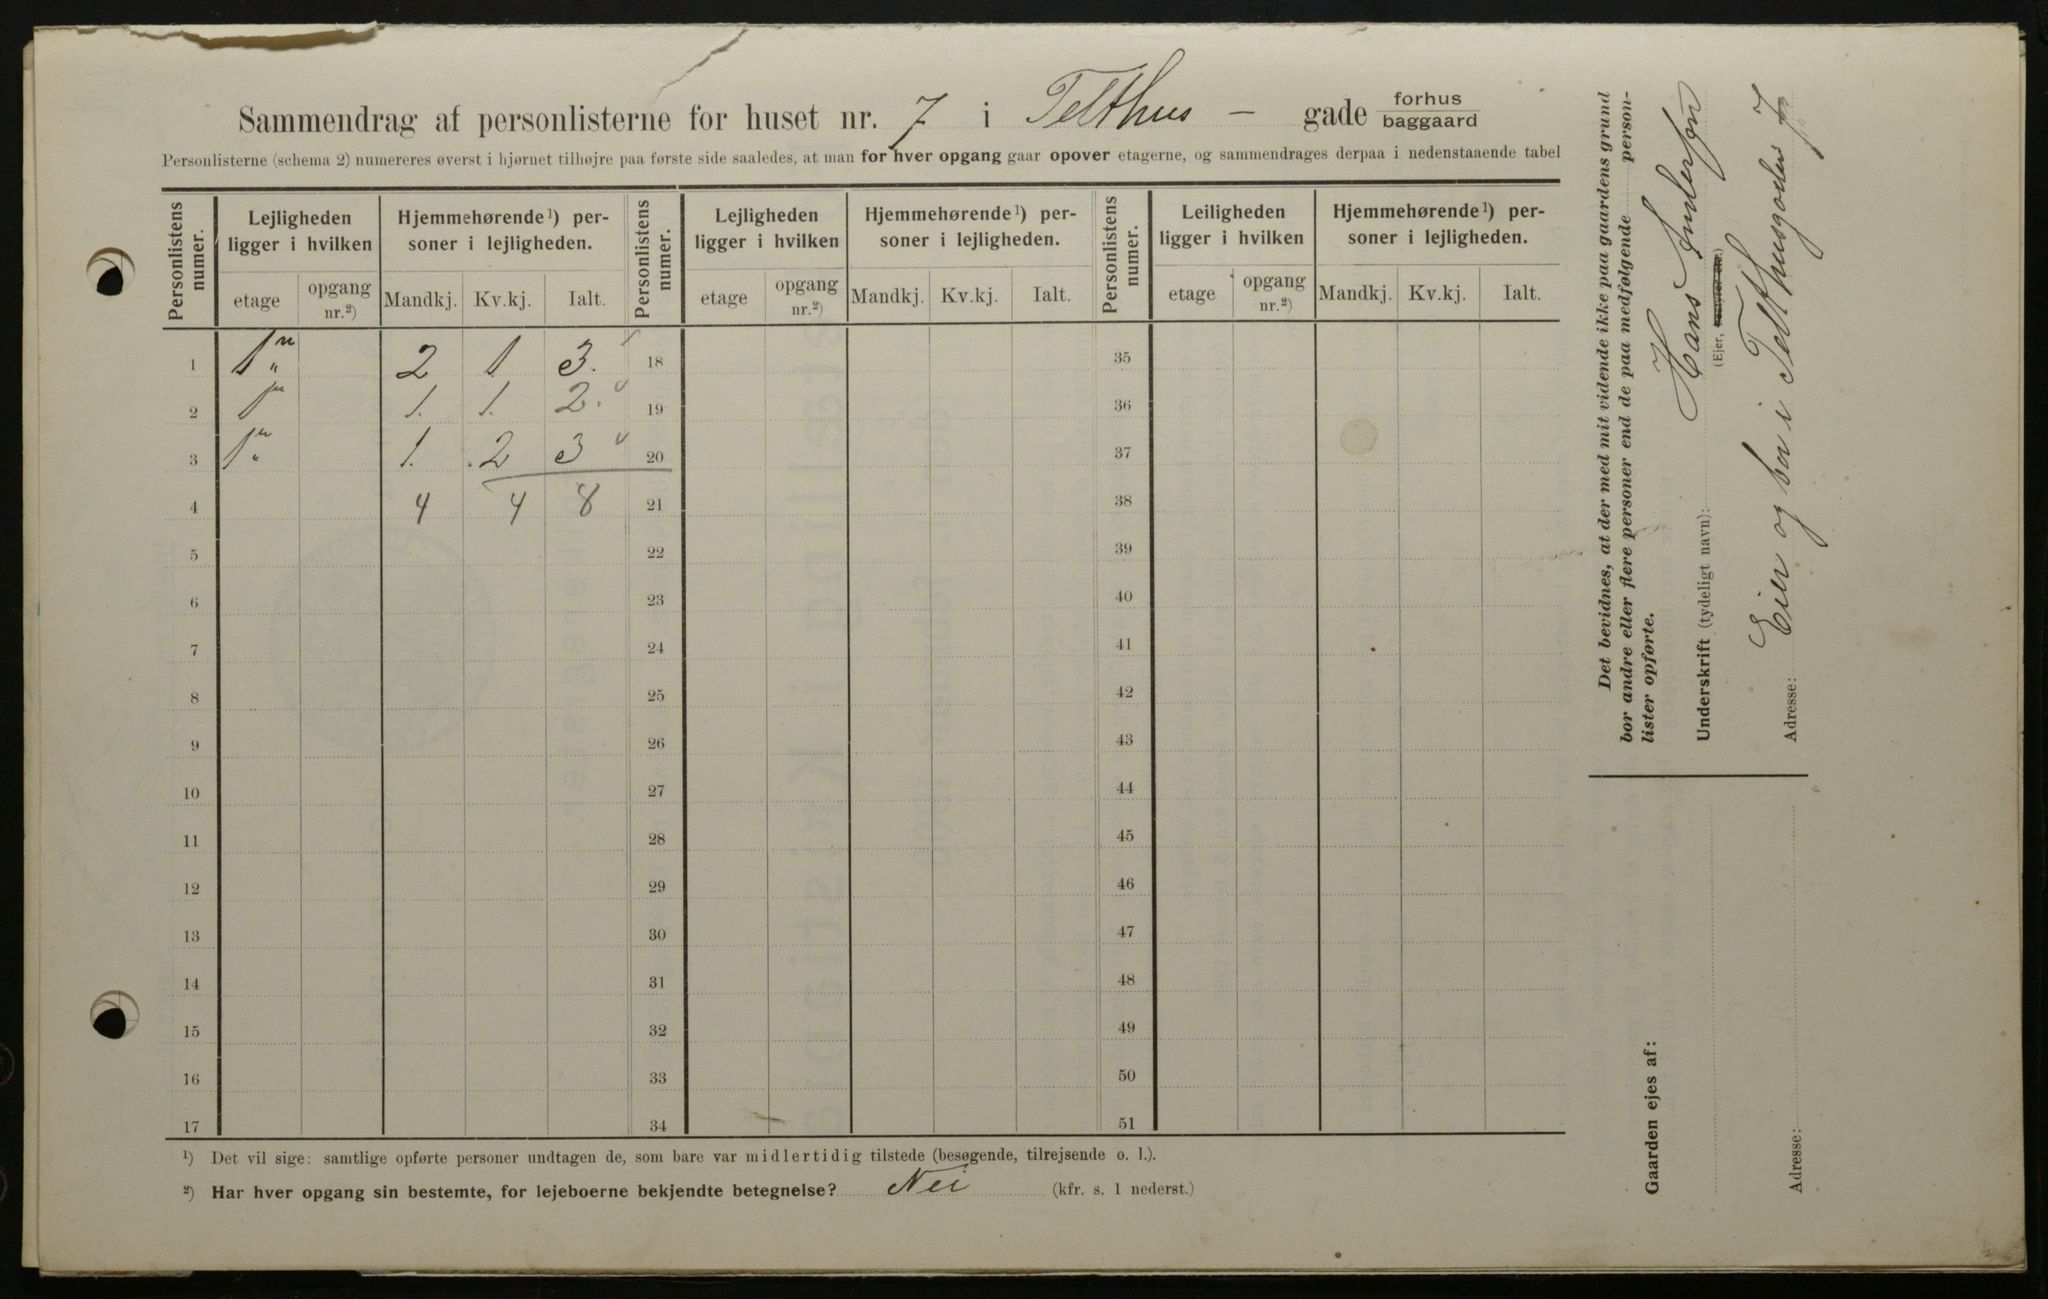 Sammendrag af personlisterne for huset nr. 7 i Telthus – gade forhus baggaard
Personlisterne (schema 2) numereres øverst i hjørnet tilhøjre paa første side saaledes, at man for hver opgang gaar opover etagerne, og sammendrages derpaa i nedenstaaende tabel
Personlistens numer. Lejligheden ligger i hvilken Hjemmehørende¹) personer i lejligheden. Personlistens numer. Lejligheden ligger i hvilken Hjemmehørende¹) personer i lejligheden. Personlistens numer. Leiligheden ligger i hvilken Hjemmehørende¹) personer i lejligheden.
etage opgang nr.²) Mandkj. Kv.kj. Ialt. etage opgang nr.²) Mandkj. Kv.kj. Ialt. etage opgang nr.²) Mandkj. Kv.kj. Ialt.
1 2 1 3. 18 35
2 1. 1. 2. 19 36
3 1. 2 3 20 37
4 4 4 8 21 38
5 22 39
6 23 40
7 24 41
8 25 42
9 26 43
10 27 44
11 28 45
12 29 46
13 30 47
14 31 48
15 32 49
16 33 50
17 34 51
¹) Det vil sige: samtlige opførte personer undtagen de, som bare var midlertidig tilstede (besøgende, tilrejsende o. l.).
²) Har hver opgang sin bestemte, for lejeboerne bekjendte betegnelse? Nei (kfr. s. 1 nederst.)
Det bevidnes, at der med mit vidende ikke paa gaardens grund
bor andre eller flere personer end de paa medfølgende person-
lister opførte.
Underskrift (tydeligt navn): Hans Andersen
(Ejer, bestyrer etc.)
Adresse: Eier og bor i Telthusgaden 7
Gaarden ejes af:
Adresse: